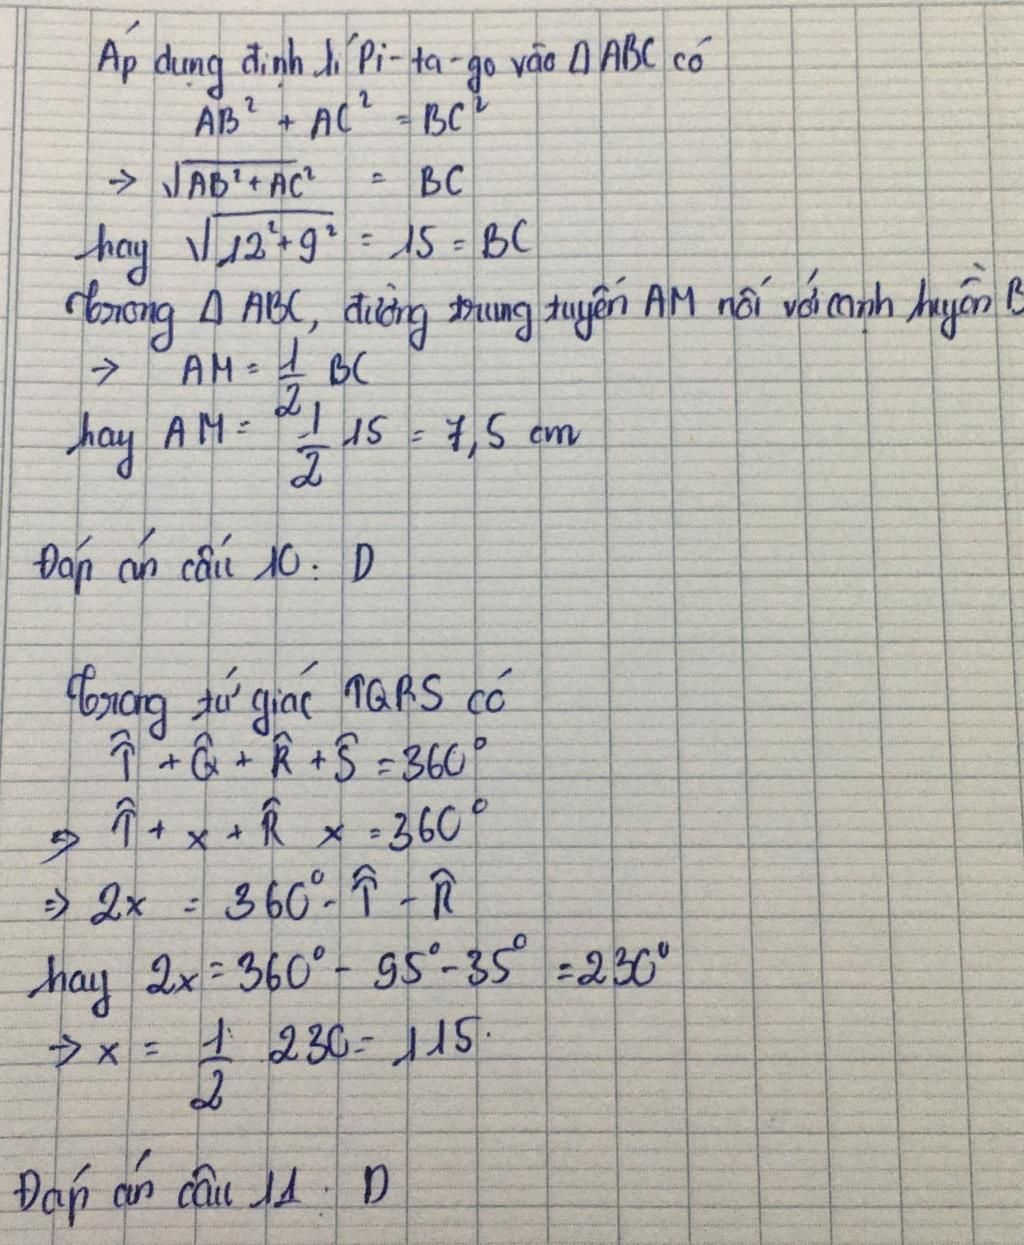 Áp dụng định lí Pi-ta-go vào Δ ABC có
AB² + AC² = BC²
→ √AB²+AC² = BC
hay √12²+9² = 15 = BC
Trong Δ ABC, đường trung tuyến AM nối với cạnh huyền B
→ AM = 1/2 BC
hay AM = 1/2 15 = 7,5 cm
Đáp án câu 10: D
Trong tứ giác TQRS có
T̂ + Q̂ + R̂ + Ŝ = 360°
⇒ T̂ + x + R̂ x = 360°
⇒ 2x = 360° - T̂ - R̂
hay 2x = 360° - 95° - 35° = 230°
→ x = 1/2 230 = 115.
Đáp án câu 11: D